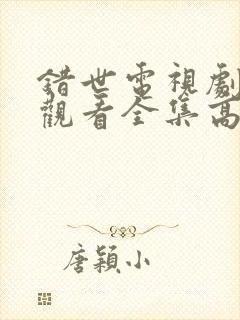 錯世電視劇
觀看全集高
唐穎小